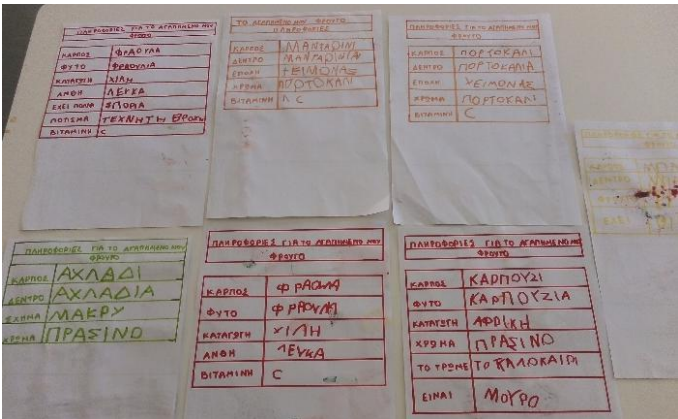 ΠΛΗΡΟΦΟΡΙΕΣ ΓΙΑ ΤΟ ΑΓΑΠΗΜΕΝΟ ΜΟΥ
ΦΡΟΥΤΟ
ΚΑΡΠΟΣ ΦΡΑΟΥΛΑ
ΦΥΤΟ ΦΡΑΟΥΛΙΑ
ΚΑΤΑΓΩΓΗ ΧΙΛΗ
ΑΝΘΗ ΛΕΥΚΑ
ΕΧΕΙ ΠΟΛΛΑ ΣΠΟΡΙΑ
ΠΟΤΙΣΜΑ ΤΕΧΝΗΤΗ ΒΡΟΧΗ
ΒΙΤΑΜΙΝΗ C
ΤΟ ΑΓΑΠΗΜΕΝΟ ΜΟΥ ΦΡΟΥΤΟ
ΠΛΗΡΟΦΟΡΙΕΣ
ΚΑΡΠΟΣ ΜΑΝΤΑΡΙΝΙ
ΔΕΝΤΡΟ ΜΑΝΤΑΡΙΝΙΑ
ΕΠΟΧΗ ΧΕΙΜΩΝΑΣ
ΧΡΩΜΑ ΠΟΡΤΟΚΑΛΙ
ΒΙΤΑΜΙΝΗ C
ΠΛΗΡΟΦΟΡΙΕΣ ΓΙΑ ΤΟ ΑΓΑΠΗΜΕΝΟ ΜΟΥ
ΦΡΟΥΤΟ
ΚΑΡΠΟΣ ΠΟΡΤΟΚΑΛΙ
ΔΕΝΤΡΟ ΠΟΡΤΟΚΑΛΙΑ
ΕΠΟΧΗ ΧΕΙΜΩΝΑΣ
ΧΡΩΜΑ ΠΟΡΤΟΚΑΛΙ
ΒΙΤΑΜΙΝΗ C
ΠΛΗΡΟΦΟΡΙΕΣ
ΕΧΕΙ
ΠΛΗΡΟΦΟΡΙΕΣ ΓΙΑ ΤΟ ΑΓΑΠΗΜΕΝΟ ΜΟΥ
ΦΡΟΥΤΟ
ΚΑΡΠΟΣ ΑΧΛΑΔΙ
ΔΕΝΤΡΟ ΑΧΛΑΔΙΑ
ΣΧΗΜΑ ΜΑΚΡΥ
ΧΡΩΜΑ ΠΡΑΣΙΝΟ
ΠΛΗΡΟΦΟΡΙΕΣ ΓΙΑ ΤΟ ΑΓΑΠΗΜΕΝΟ ΜΟΥ
ΦΡΟΥΤΟ
ΚΑΡΠΟΣ ΦΡΑΟΥΛΑ
ΦΥΤΟ ΦΡΑΟΥΛΙΑ
ΚΑΤΑΓΩΓΗ ΧΙΛΗ
ΑΝΘΗ ΛΕΥΚΑ
ΒΙΤΑΜΙΝΗ C
ΠΛΗΡΟΦΟΡΙΕΣ ΓΙΑ ΤΟ ΑΓΑΠΗΜΕΝΟ ΜΟΥ
ΦΡΟΥΤΟ
ΚΑΡΠΟΣ ΚΑΡΠΟΥΖΙ
ΦΥΤΟ ΚΑΡΠΟΥΖΙΑ
ΚΑΤΑΓΩΓΗ ΑΦΡΙΚΗ
ΧΡΩΜΑ ΠΡΑΣΙΝΟ
ΤΟ ΤΡΩΜΕ ΤΟ ΚΑΛΟΚΑΙΡΙ
ΕΙΝΑΙ ΜΟΥΡΟ